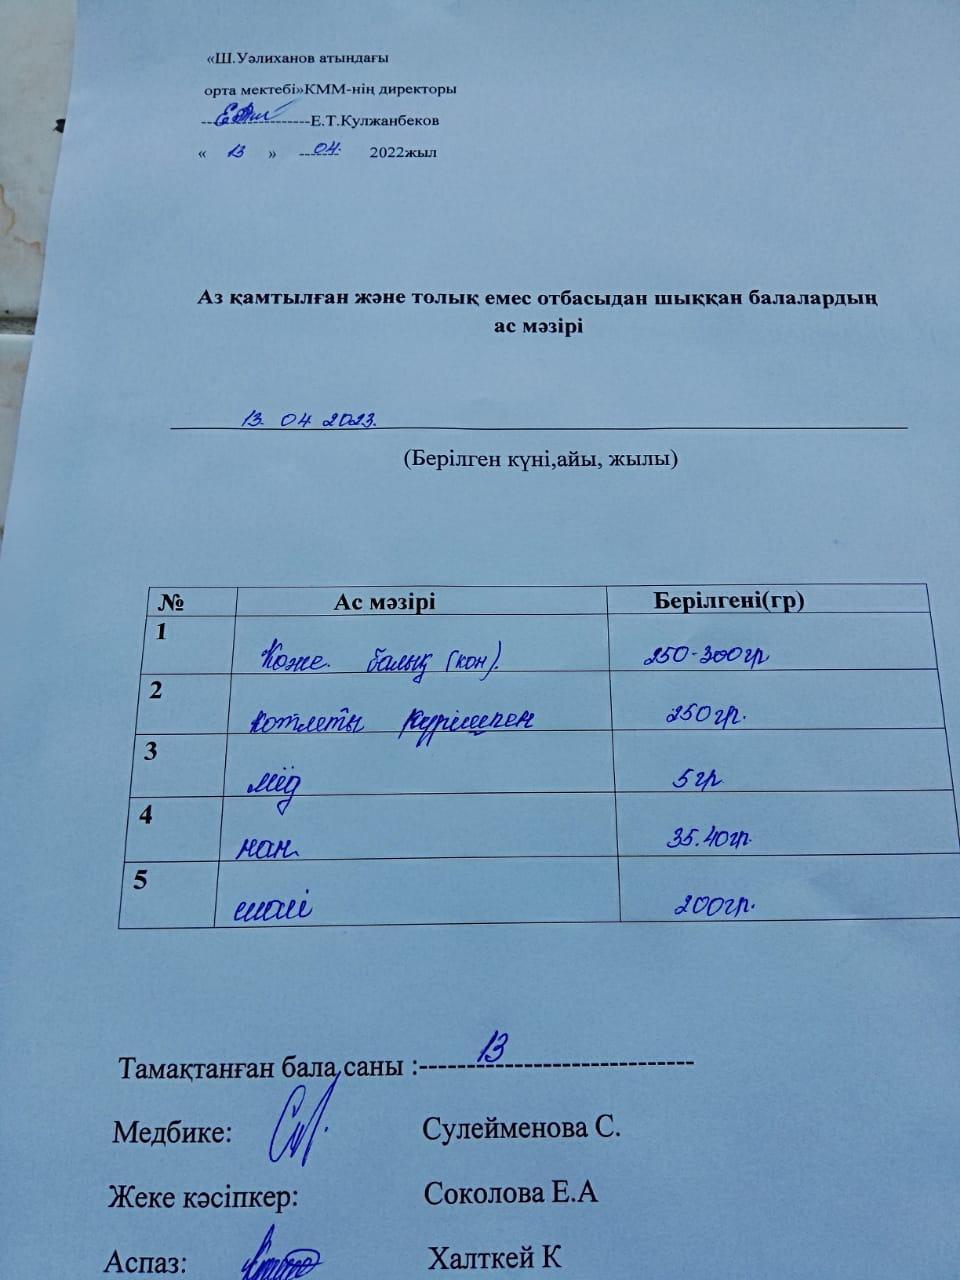 «Ш.Уәлиханов атындағы
орта мектебі»КММ-нің директоры
---------------Е.Т.Кулжанбеков
« 13 » 04. 2022жыл
Аз қамтылған және толық емес отбасыдан шыққан балалардың
ас мәзірі
13. 04 2023.
(Берілген күні,айы, жылы)
№ Ас мәзірі Берілгені(гр)
1 Коже. балық (кон). 250-300гр
2 котлеты күрішпен 250гр.
3 мёд 5гр
4 нан 35.40гр.
5 шай 200гр.
Тамақтанған бала саны :-----13-----------------------
Медбике: Сулейменова С.
Жеке кәсіпкер: Соколова Е.А
Аспаз: Халткей К